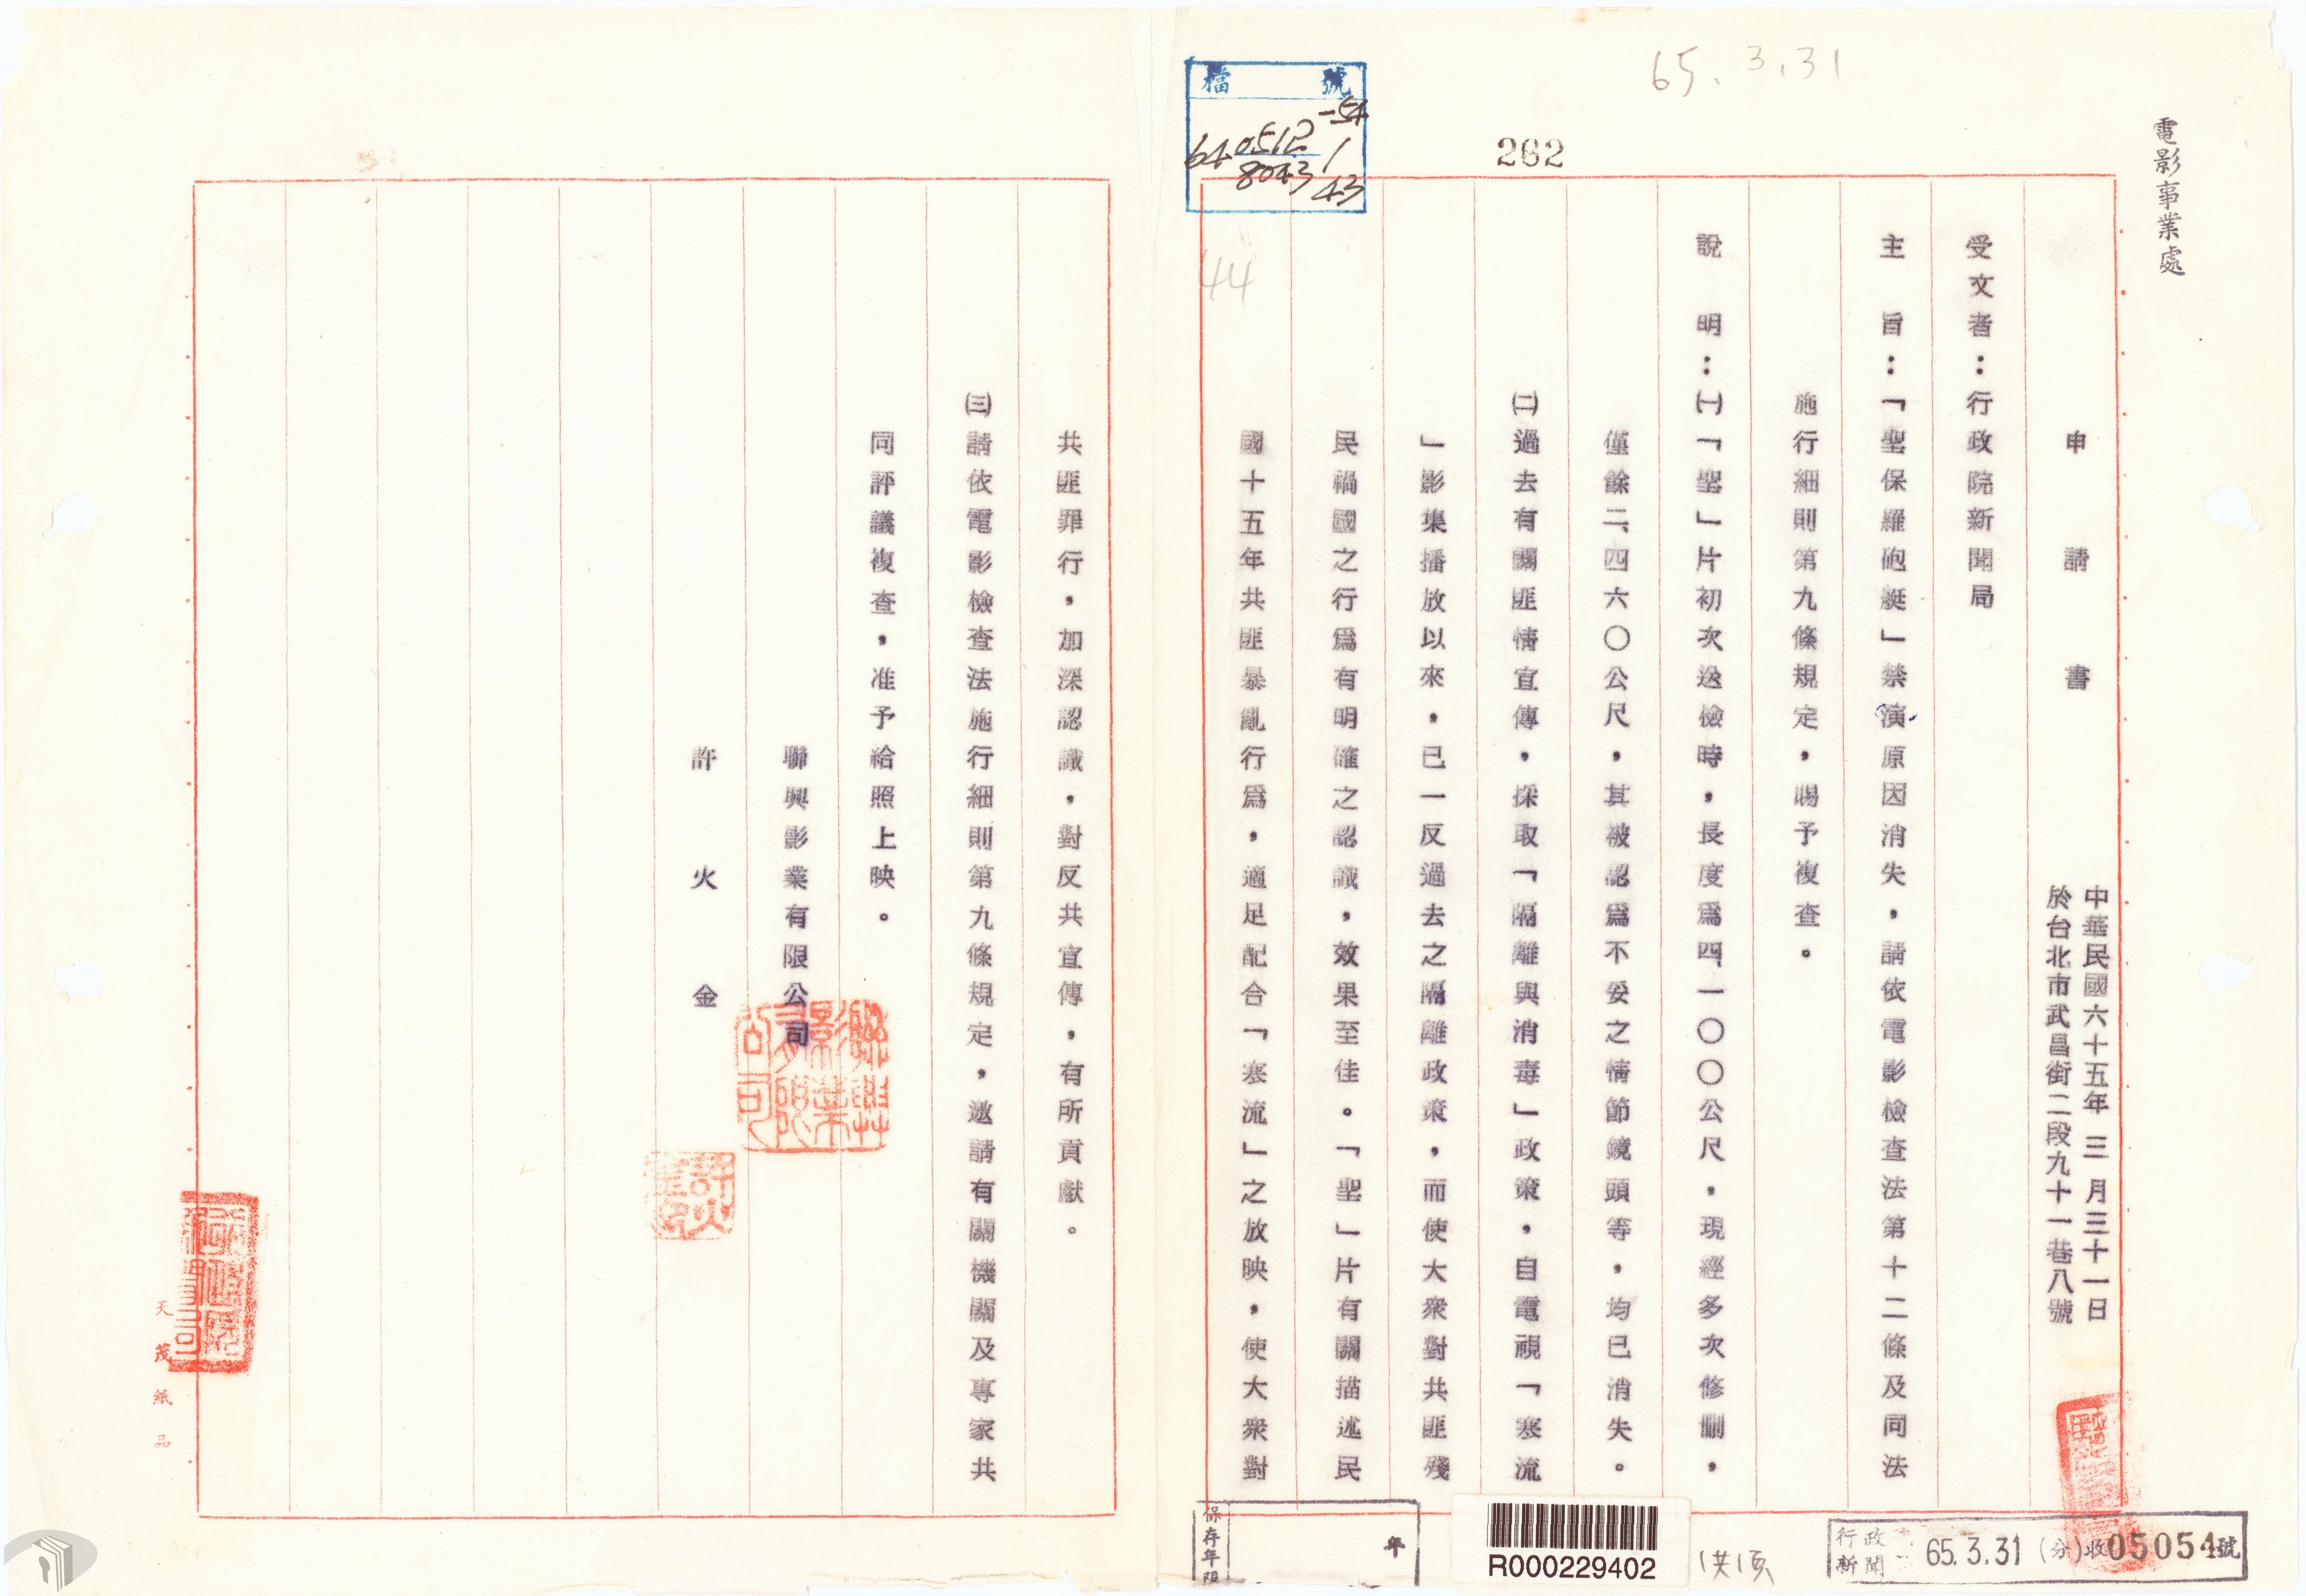 65.3.31
檔號
0512
-54
64
8043
1
43
262
電影事業處
44
申請書
中華民國六十五年三月三十一日
於台北市武昌街二段九十一巷八號
受文者：行政院新聞局
主旨：「聖保羅砲艇」禁演原因消失，請依電影檢查法第十二條及同法
施行細則第九條規定，賜予複查。
說明：㈠「聖」片初次送檢時，長度為四、一〇〇公尺，現經多次修刪，
僅餘二、四六〇公尺，其被認為不妥之情節鏡頭等，均已消失。
㈡過去有關匪情宣傳，採取「隔離與消毒」政策，自電視「寒流
」影集播放以來，已一反過去之隔離政策，而使大衆對共匪殘
民禍國之行為有明確之認識，效果至佳。「聖」片有關描述民
國十五年共匪暴亂行為，適足配合「寒流」之放映，使大衆對
共匪罪行，加深認識，對反共宣傳，有所貢獻。
㈢請依電影檢查法施行細則第九條規定，邀請有關機關及專家共
同評議複查，准予給照上映。
聯興影業有限公司
許火金
聯興影業有限公司
天茂紙品
保存年限
年
R000229402
1共1頁
行政
新聞
65.3.31
(分)收05054號